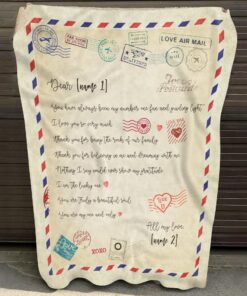 LOVE AIR MAIL
Dear [name 1]
You have always been my number one fan and guiding light
I love you so very much
Thank you for being the rock of our family
Thank you for believing in me and dreaming with me
Nothing I say could ever show my gratitude
I am the lucky one
You are truly a beautiful soul
You are my one and only
All my love,
[name 2]
XOXO